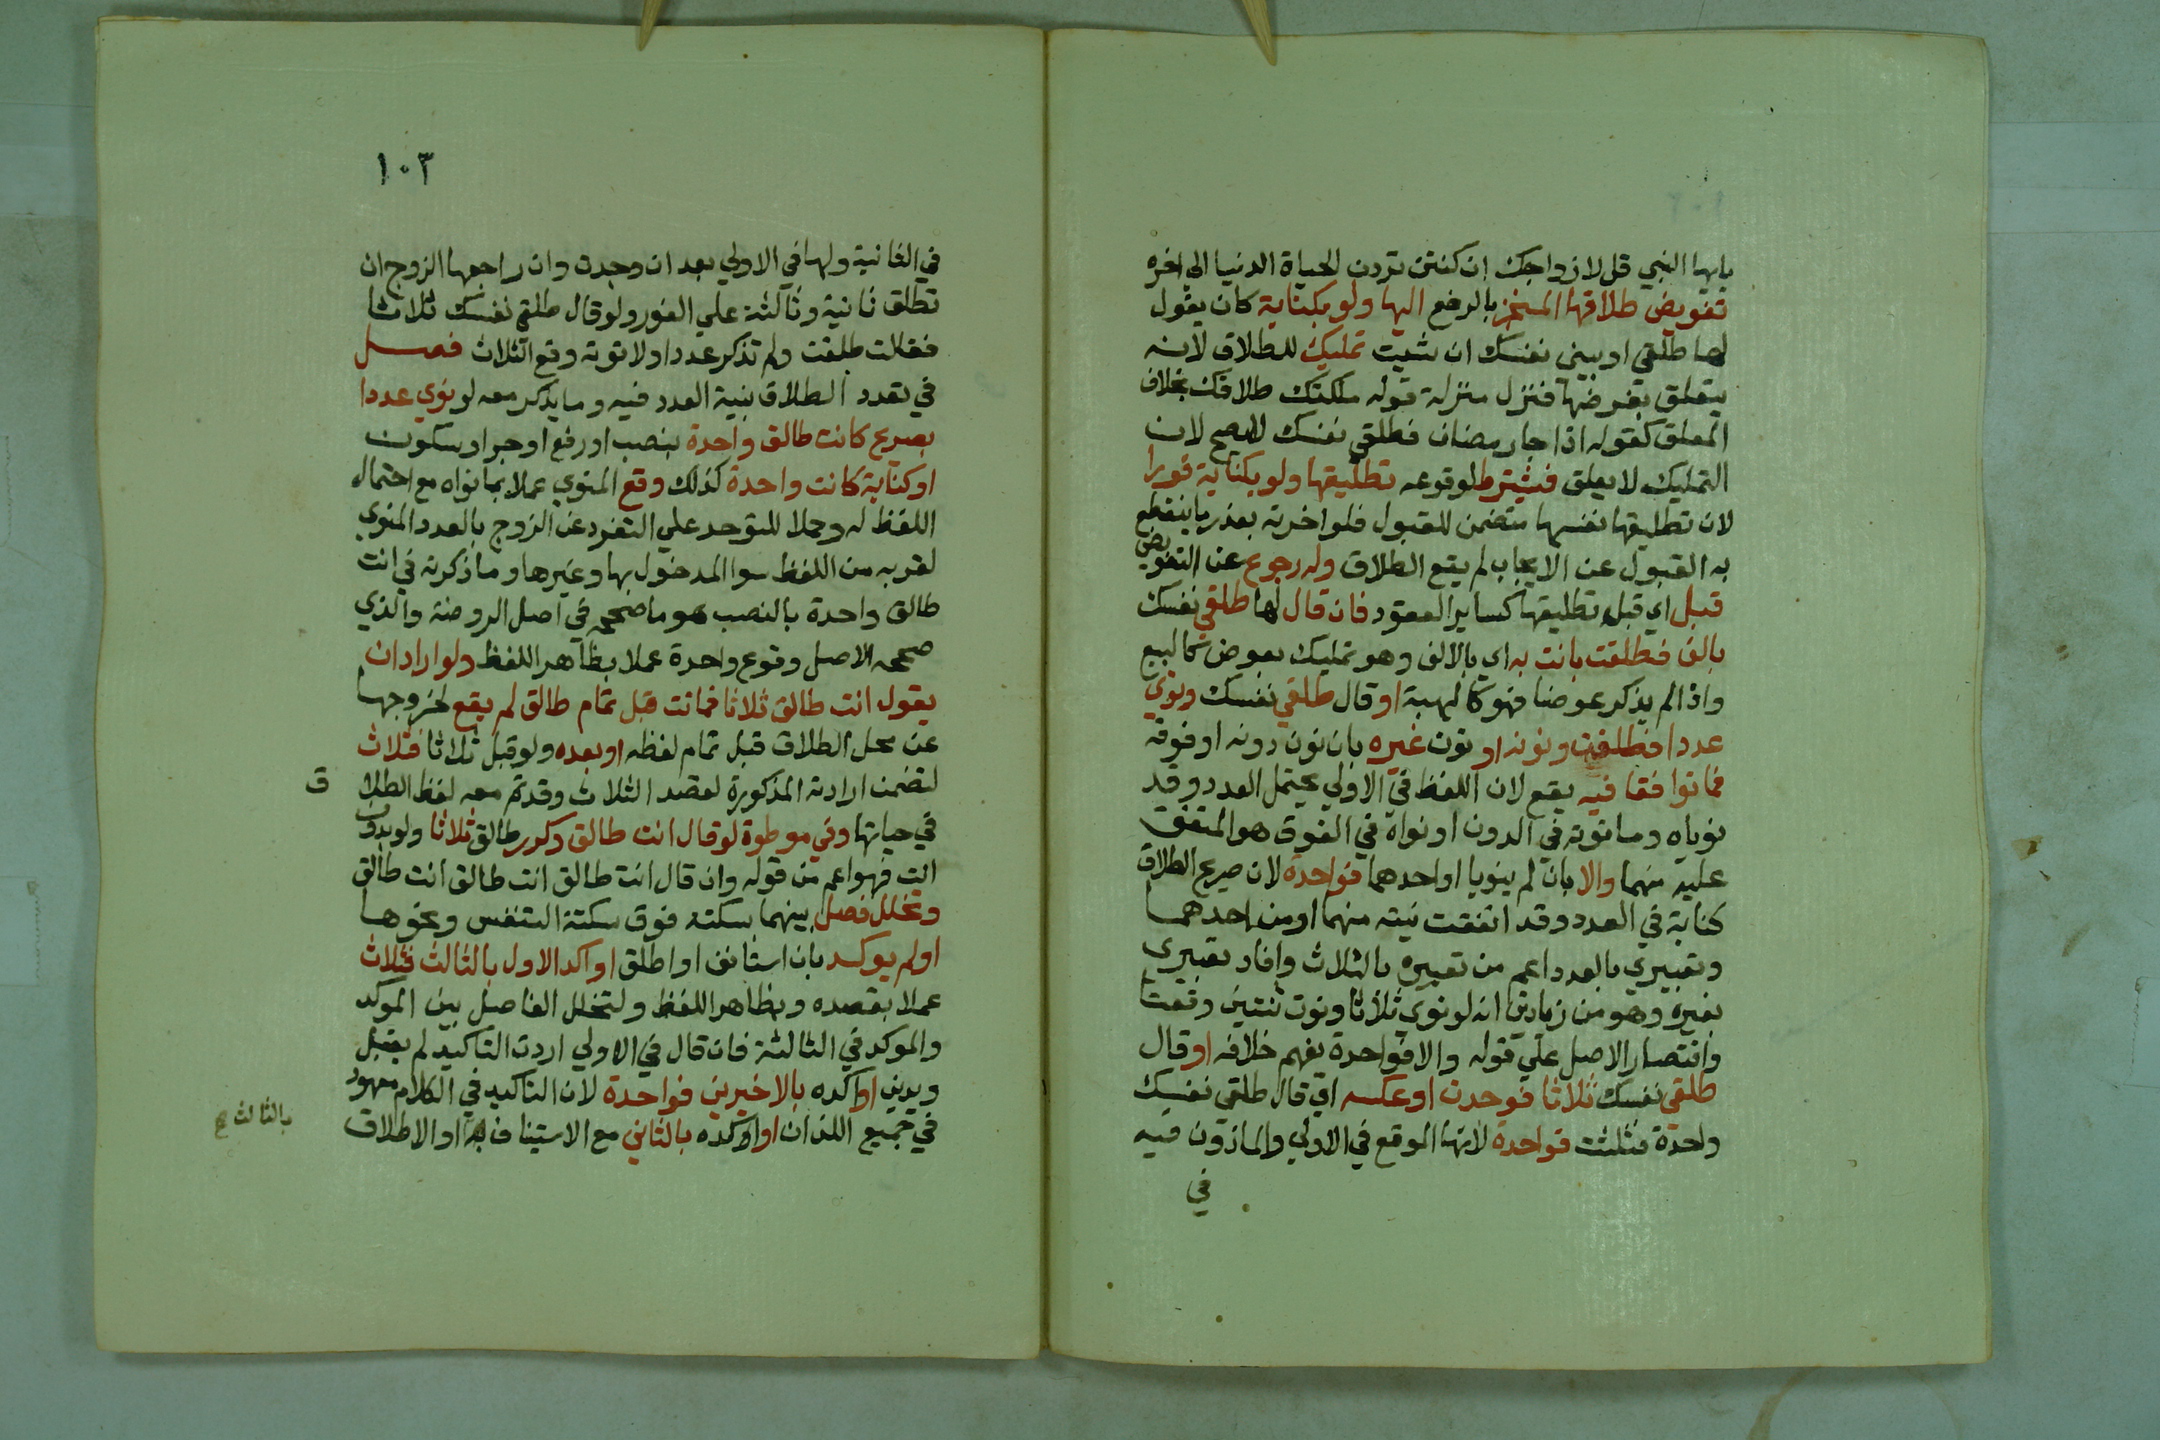 يايها النبي قل لازواجك ان كنتن تردن الحياة الدنيا الي اخره
تفويض طلاقها المنجز بالرفع اليها ولو بكناية كان يقول
لها طلقي او بيني نفسك ان شيت تمليك للطلاق لانه
يتعلق بغرضها فنزل منزلة قوله ملكتك طلاقك بخلاف
المعلق كقوله اذا جا رمضان فطلقي نفسك لا يصح لان
التمليك لا يعلق فيشترط لوقوعه تطليقها ولو بكناية فورا
لان تطليقها نفسها متضمن للقبول فلو اخرته بقدر ما ينقطع
به القبول عن الايجاب لم يقع الطلاق وله رجوع عن التفويض
قبل اي قبل تطليقها كساير العقود فان قال لها طلقي نفسك
بالف فطلقت بانت به اي بالالف وهو تمليك بعوض كالبيع
واذا لم يذكر عوضا فهو كالهبة او قال طلقي نفسك ونوي
عددا فطلقت ونوته او نوت غيره بان نوت دونه او فوقه
فما توافقا فيه يقع لان اللفظ في الاولي يحتمل العدد وقد
نوياه وما نوته في الدون او نواه في الفوق هو المتفق
عليه منهما والا بان لم ينويا او احدهما فواحدة لان صريح الطلاق
كناية في العدد وقد انتفت نيته منهما او من احدهما
وتعبيري بالعدد اعم من تعبيره بالثلاث وافاد تعبيري
بغيره وهو من زيادتي انه لو نوي ثلاثا ونوت ثنتين وقعتا
واقتصار الاصل علي قوله والا فواحدة يفهم خلافه او قال
طلقي نفسك ثلاثا فوحدت او عكسه اي قال طلقي نفسك
واحدة فثلثت فواحدة لانها الموقع في الاولي والماذون فيه
في
١٠٣
في الثانية ولها في الاولي بعد ان وحدت وان راجعها الزوج ان
تطلق ثانية وثالثة علي الفور ولو قال طلقي نفسك ثلاثا
فقالت طلقت ولم تذكر عددا ولا نوته وقع الثلاث فصل
في تعدد الطلاق بنية العدد فيه وما يذكر معه لو نوي عددا
بصريح كانت طالق واحدة بنصب او رفع او جر او سكون
او كناية كانت واحدة كذلك وقع المنوي عملا بما نواه مع احتمال
اللفظ له وحملا للتوحد علي التفرد عن الزوج بالعدد المنوي
لقربه من اللفظ سوا المدخول بها وغيرها وما ذكرته في انت
طالق واحدة بالنصب هو ما صححه في اصل الروضة والذي
صححه الاصل وقوع واحدة عملا بظاهر اللفظ ولو اراد ان
يقول انت طالق ثلاثا فماتت قبل تمام طالق لم يقع لخروجها
عن محل الطلاق قبل تمام لفظه او بعده ولو قبل ثلاثا فثلاث
لتضمن ارادته المذكورة لقصد الثلاث وقد تم معه لفظ الطلا ق
في حياتها وفي موطوة لو قال انت طالق وكرر طالق ثلاثا ولو بدون
انت فهو اعم من قوله وان قال انت طالق انت طالق انت طالق
وتخلل فصل بينهما بسكتة فوق سكتة التنفس ونحوها
او لم يوكد بان استانف او اطلق او اكد الاول بالثالث فثلاث
عملا بقصده وبظاهر اللفظ ولتخلل الفاصل بين الموكد
والموكد في الثالثة فان قال في الاولي اردت التاكيد لم يقبل
ويدين او اكده بالاخيرين فواحدة لان التاكيد في الكلام معهود
في جميع اللغات او اكده بالثاني مع الاستيناف به او الاطلاق
بالثالث صح